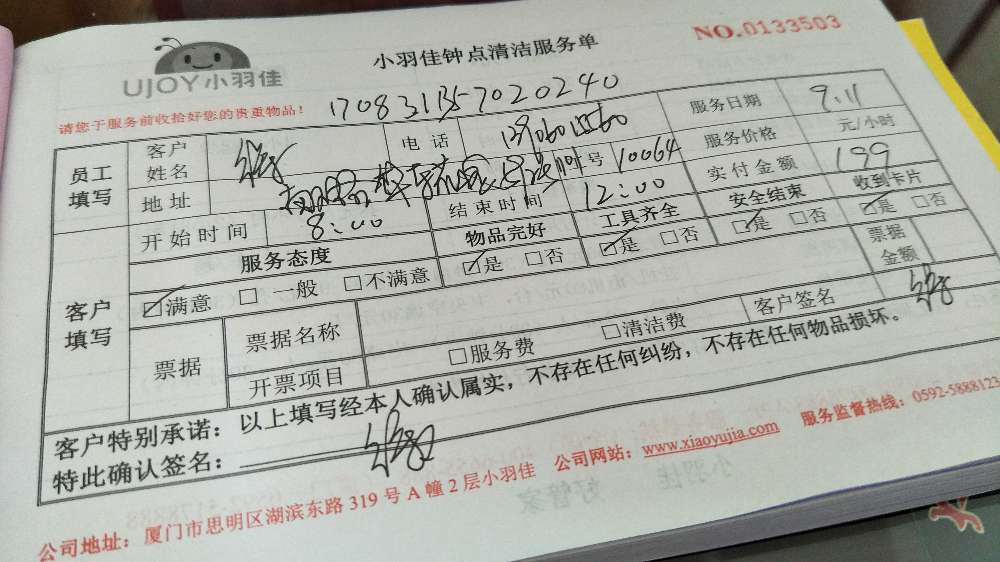 UJOY小羽佳
小羽佳钟点清洁服务单
NO.0133503
请您于服务前收拾好您的贵重物品！
员工填写 客户姓名 电话 服务日期 9.11
地址 号 10064 服务价格 元/小时
开始时间 8:00 结束时间 12:00 实付金额 199
客户填写 服务态度 物品完好 工具齐全 安全结束 收到卡片
☑满意 □一般 □不满意 ☑是 □否 ☑是 □否 ☑是 □否 ☑是 □否
票据 票据名称 票据金额
开票项目 □服务费 □清洁费 客户签名
客户特别承诺：以上填写经本人确认属实，不存在任何纠纷，不存在任何物品损坏。
特此确认签名：
公司地址：厦门市思明区湖滨东路319号A幢2层小羽佳 公司网站：www.xiaoyujia.com 服务监督热线：0592-5888123